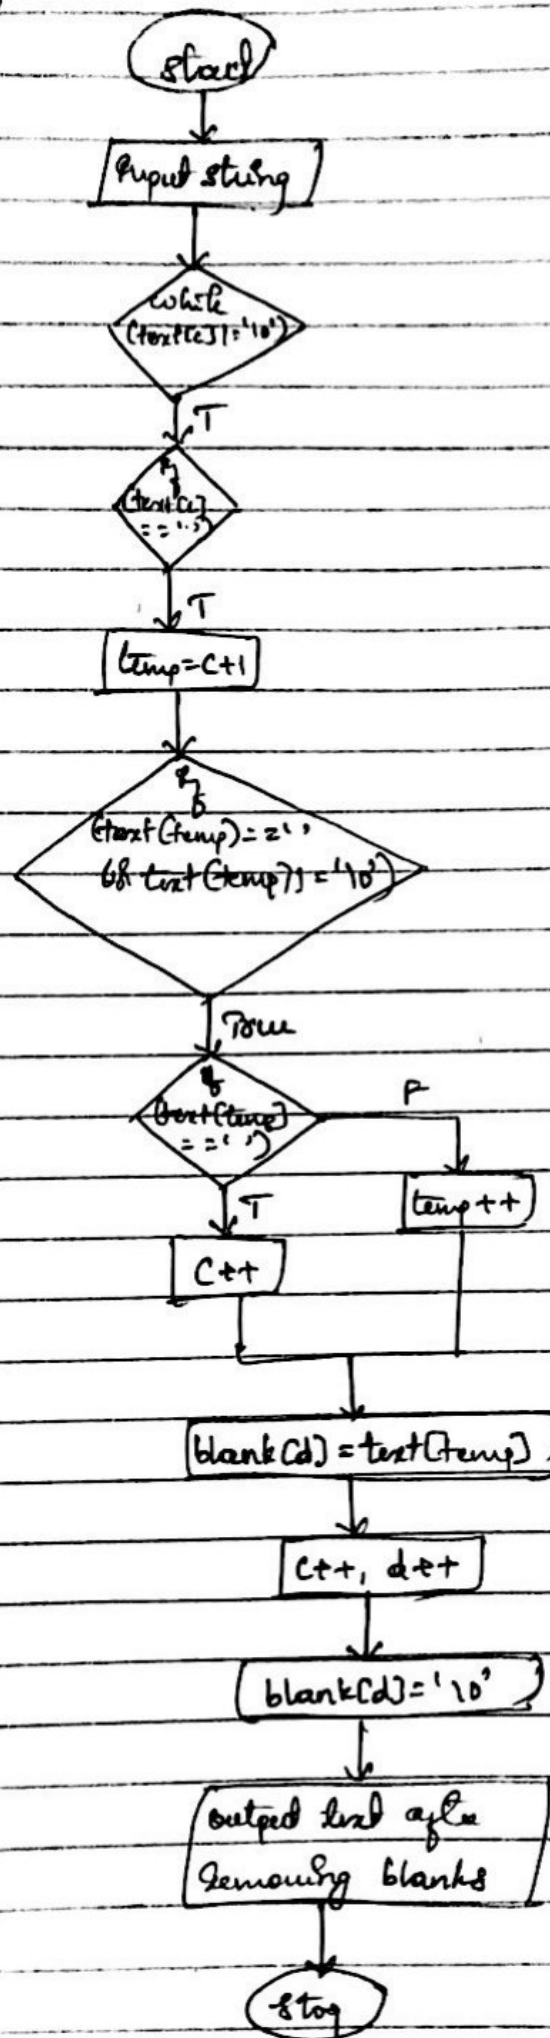 start
Input string
while
(text[c]!='\0')
T
If
(text[c]
==' ')
T
temp=c+1
If
(text(temp)==' '
&& text(temp)!='\0')
True
If
(text[temp]
==' ')
F
T
temp++
C++
blank[d]=text[temp]
c++, d++
blank[d]='\0'
output text after
removing blanks
stop